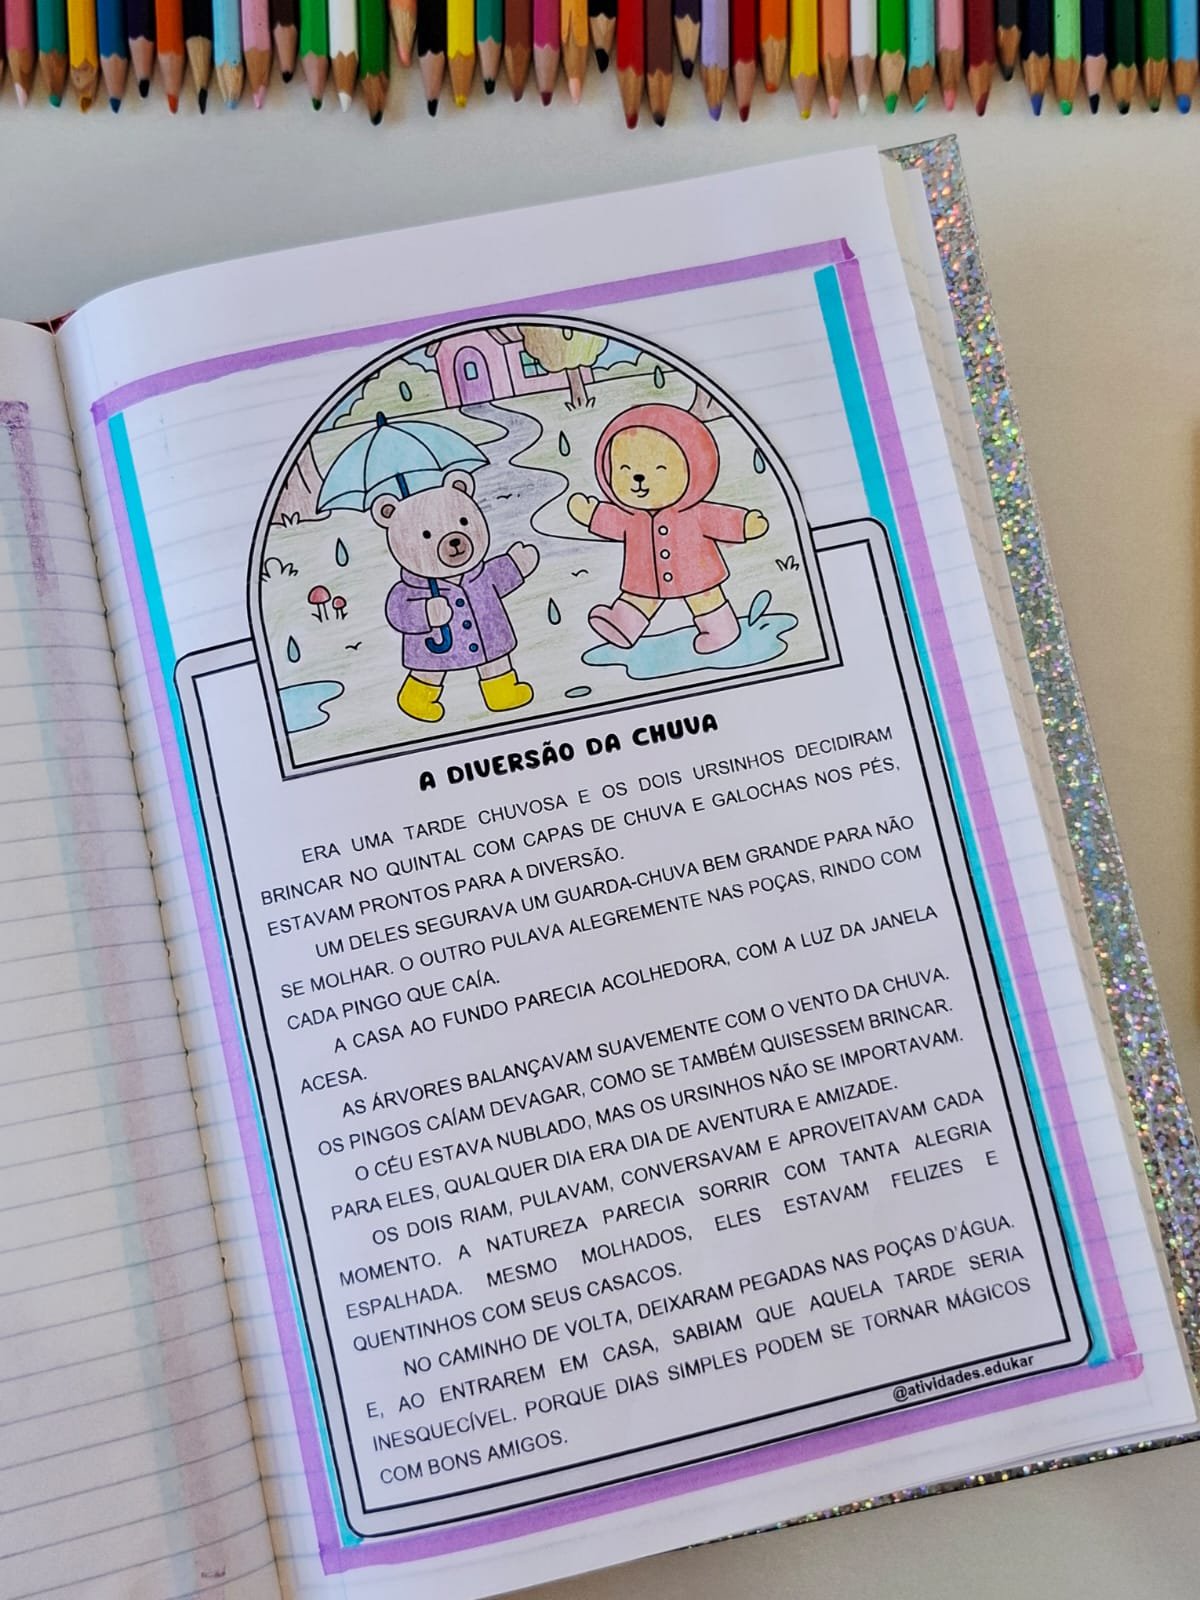 A DIVERSÃO DA CHUVA
ERA UMA TARDE CHUVOSA E OS DOIS URSINHOS DECIDIRAM
BRINCAR NO QUINTAL COM CAPAS DE CHUVA E GALOCHAS NOS PÉS,
ESTAVAM PRONTOS PARA A DIVERSÃO.
UM DELES SEGURAVA UM GUARDA-CHUVA BEM GRANDE PARA NÃO
SE MOLHAR. O OUTRO PULAVA ALEGREMENTE NAS POÇAS, RINDO COM
CADA PINGO QUE CAÍA.
A CASA AO FUNDO PARECIA ACOLHEDORA, COM A LUZ DA JANELA
ACESA.
AS ÁRVORES BALANÇAVAM SUAVEMENTE COM O VENTO DA CHUVA.
OS PINGOS CAÍAM DEVAGAR, COMO SE TAMBÉM QUISESSEM BRINCAR.
O CÉU ESTAVA NUBLADO, MAS OS URSINHOS NÃO SE IMPORTAVAM.
PARA ELES, QUALQUER DIA ERA DIA DE AVENTURA E AMIZADE.
OS DOIS RIAM, PULAVAM, CONVERSAVAM E APROVEITAVAM CADA
MOMENTO. A NATUREZA PARECIA SORRIR COM TANTA ALEGRIA
ESPALHADA. MESMO MOLHADOS, ELES ESTAVAM FELIZES E
QUENTINHOS COM SEUS CASACOS.
NO CAMINHO DE VOLTA, DEIXARAM PEGADAS NAS POÇAS D'ÁGUA.
E, AO ENTRAREM EM CASA, SABIAM QUE AQUELA TARDE SERIA
INESQUECÍVEL. PORQUE DIAS SIMPLES PODEM SE TORNAR MÁGICOS
COM BONS AMIGOS.
@atividades.edukar